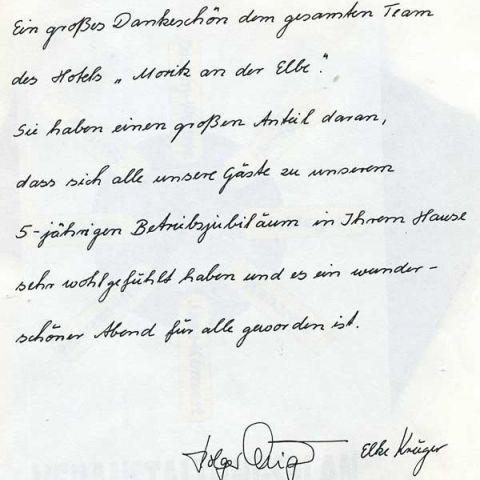 Ein großes Dankeschön dem gesamten Team
des Hotels „Moritz an der Elbe".
Sie haben einen großen Anteil daran,
dass sich alle unsere Gäste zu unserem
5-jährigen Betriebsjubiläum in Ihrem Hause
sehr wohlgefühlt haben und es ein wunder-
schöner Abend für alle geworden ist.
Holger Elke Krüger